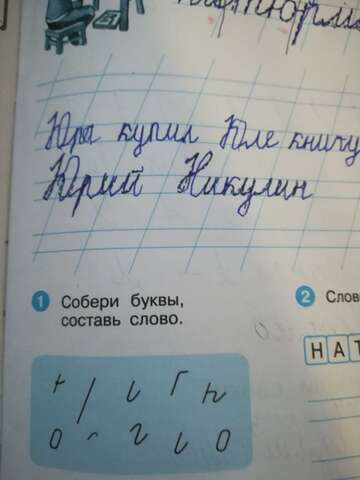 Юра купил Юле кничу
Юрий Никулин
1 Собери буквы,
составь слово.
2 Слов
НАТ